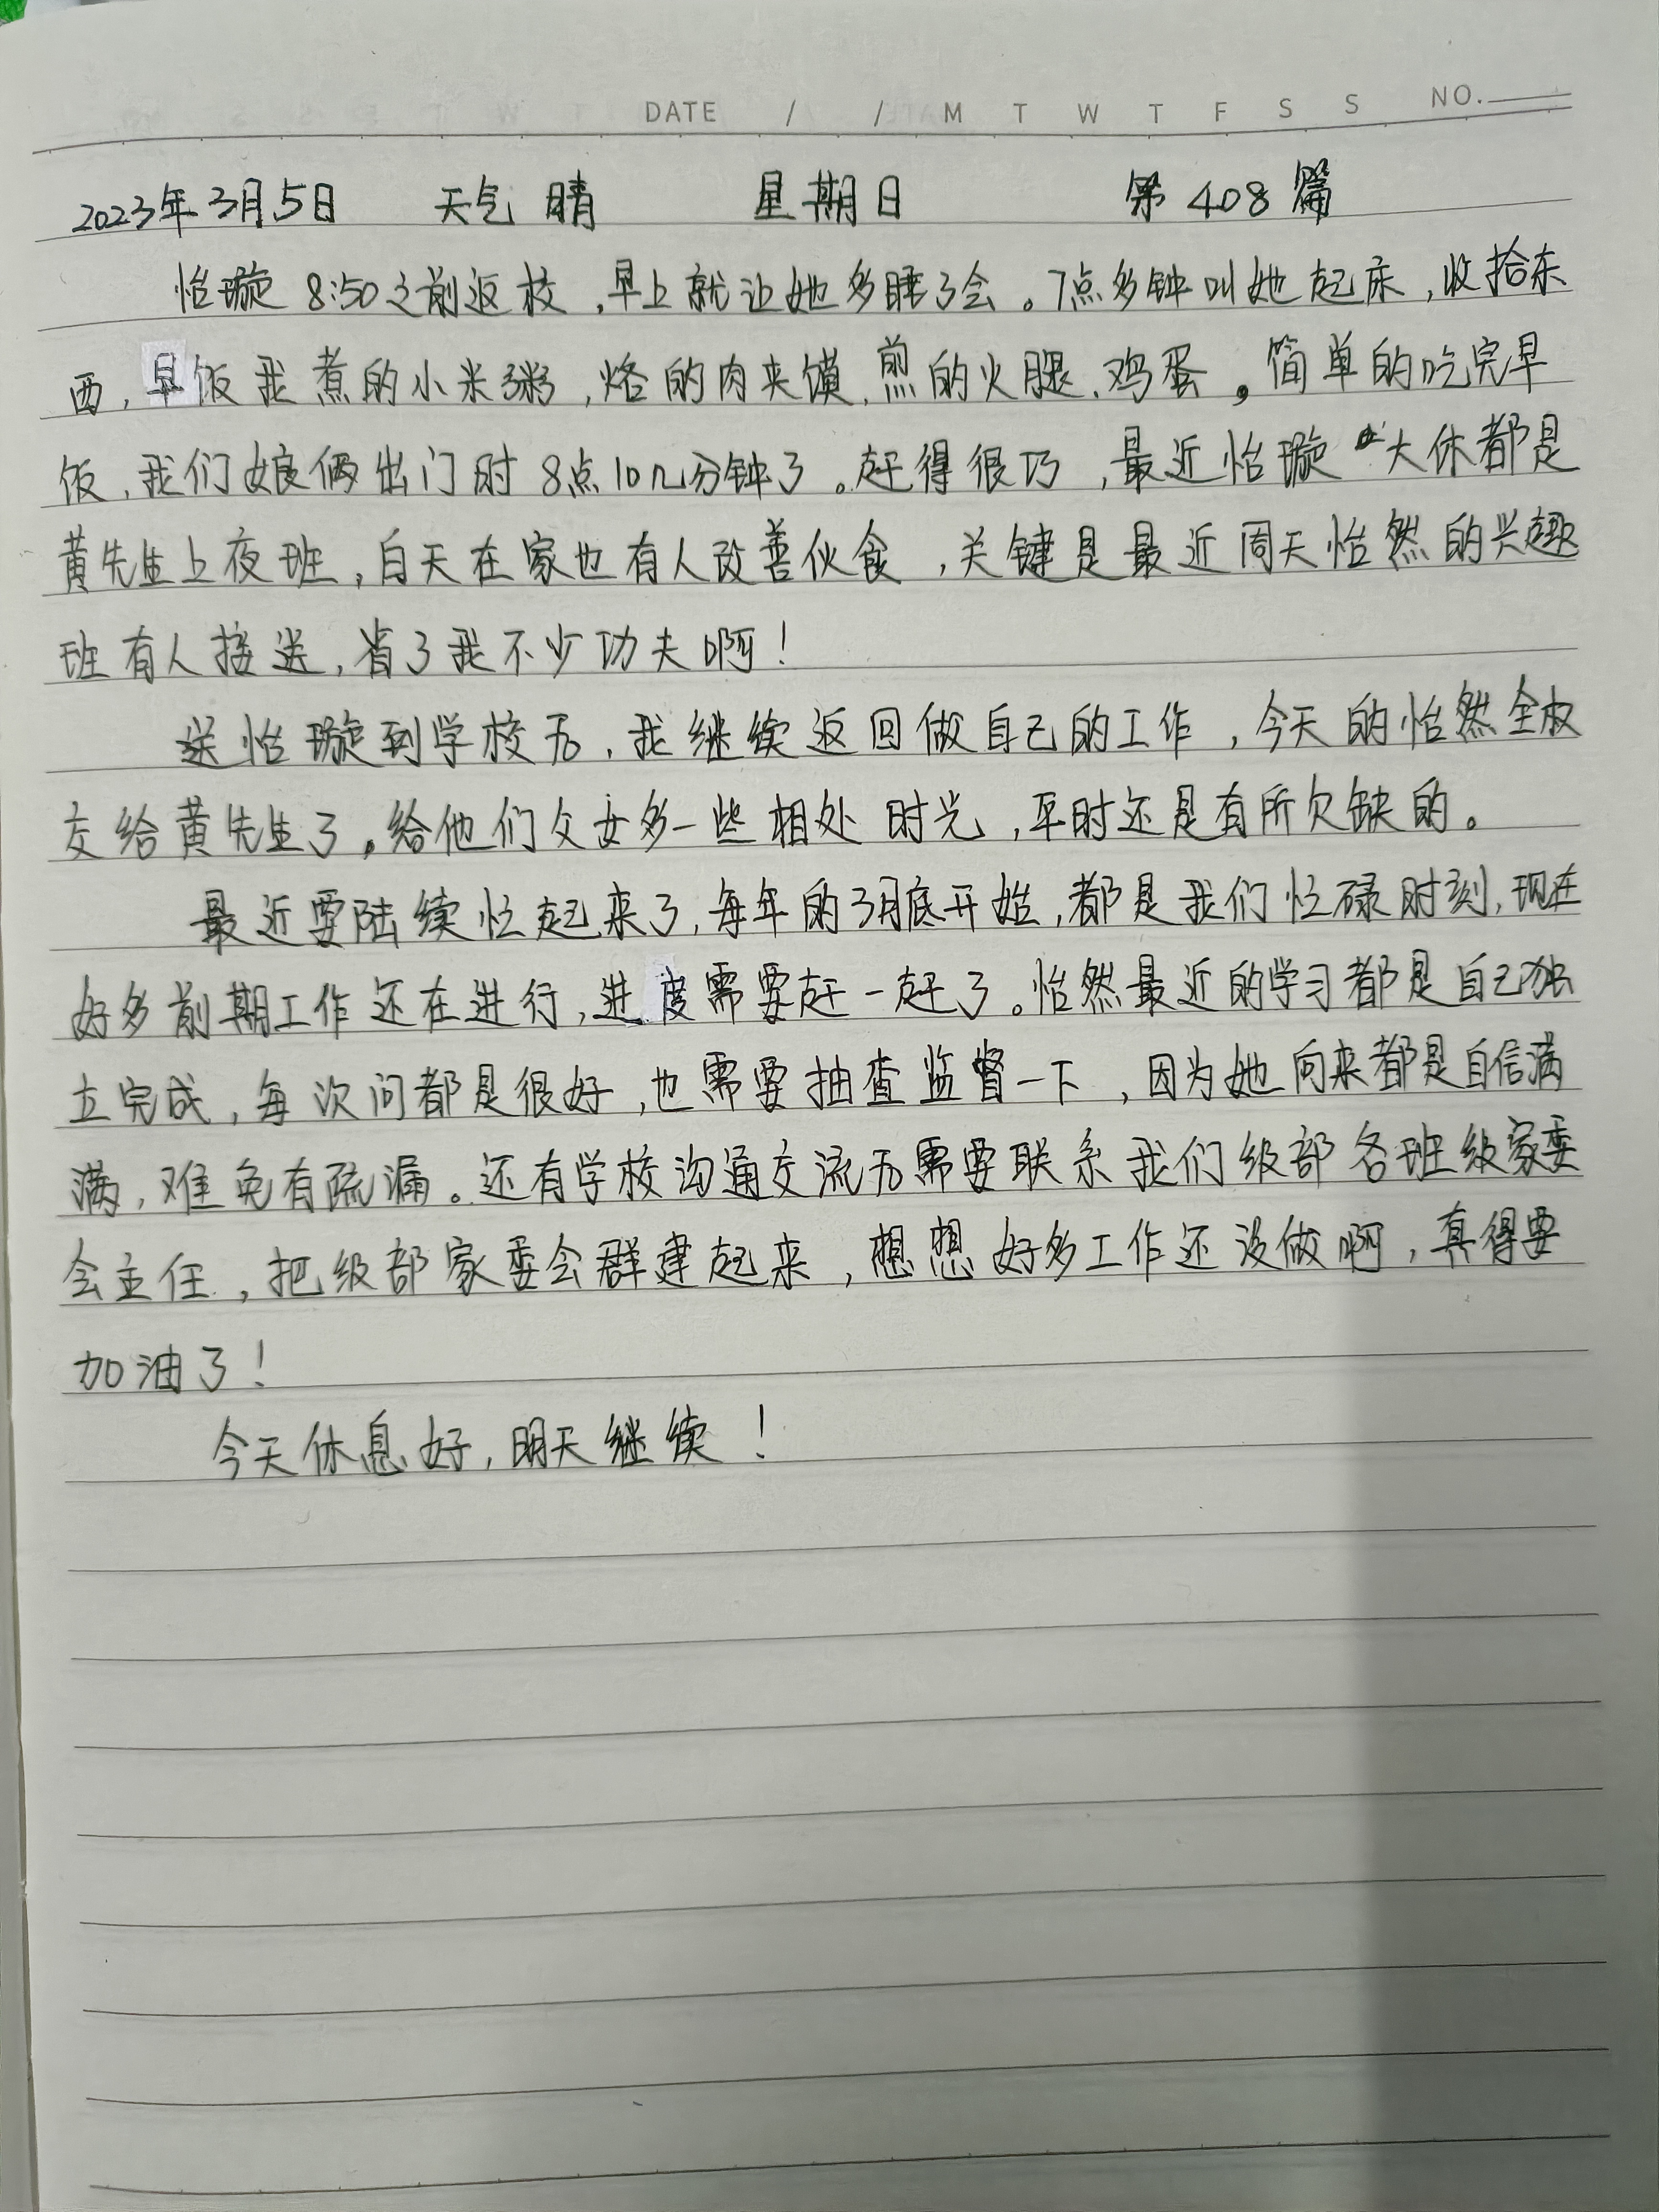 DATE / / M T W T F S S NO.
2023年3月5日 天气 晴 星期日 第 408 篇
怡璇 8:50之前返校,早上就让她多睡了会。7点多钟叫她起床,收拾东
西,早饭我煮的小米粥,烙的肉夹馍、煎的火腿、鸡蛋。简单的吃完早
饭,我们娘俩出门时 8点10几分钟了。赶得很巧,最近怡璇大休都是
黄先生上夜班,白天在家也有人改善伙食,关键是最近周天怡然的兴趣
班有人接送,省了我不少功夫啊!
送怡璇到学校后,我继续返回做自己的工作,今天的怡然全权
交给黄先生了。给他们父女多一些相处时光,平时还是有所欠缺的。
最近要陆续忙起来了,每年的3月底开始,都是我们忙碌时刻,现在
好多前期工作还在进行,进度需要赶一赶了。怡然最近的学习都是自己独
立完成,每次问都是很好,也需要抽查监督一下,因为她向来都是自信满
满,难免有疏漏。还有学校沟通交流后需要联系我们级部各班级家委
会主任,把级部家委会群建起来,想想好多工作还没做啊,真得要
加油了!
今天休息好,明天继续!